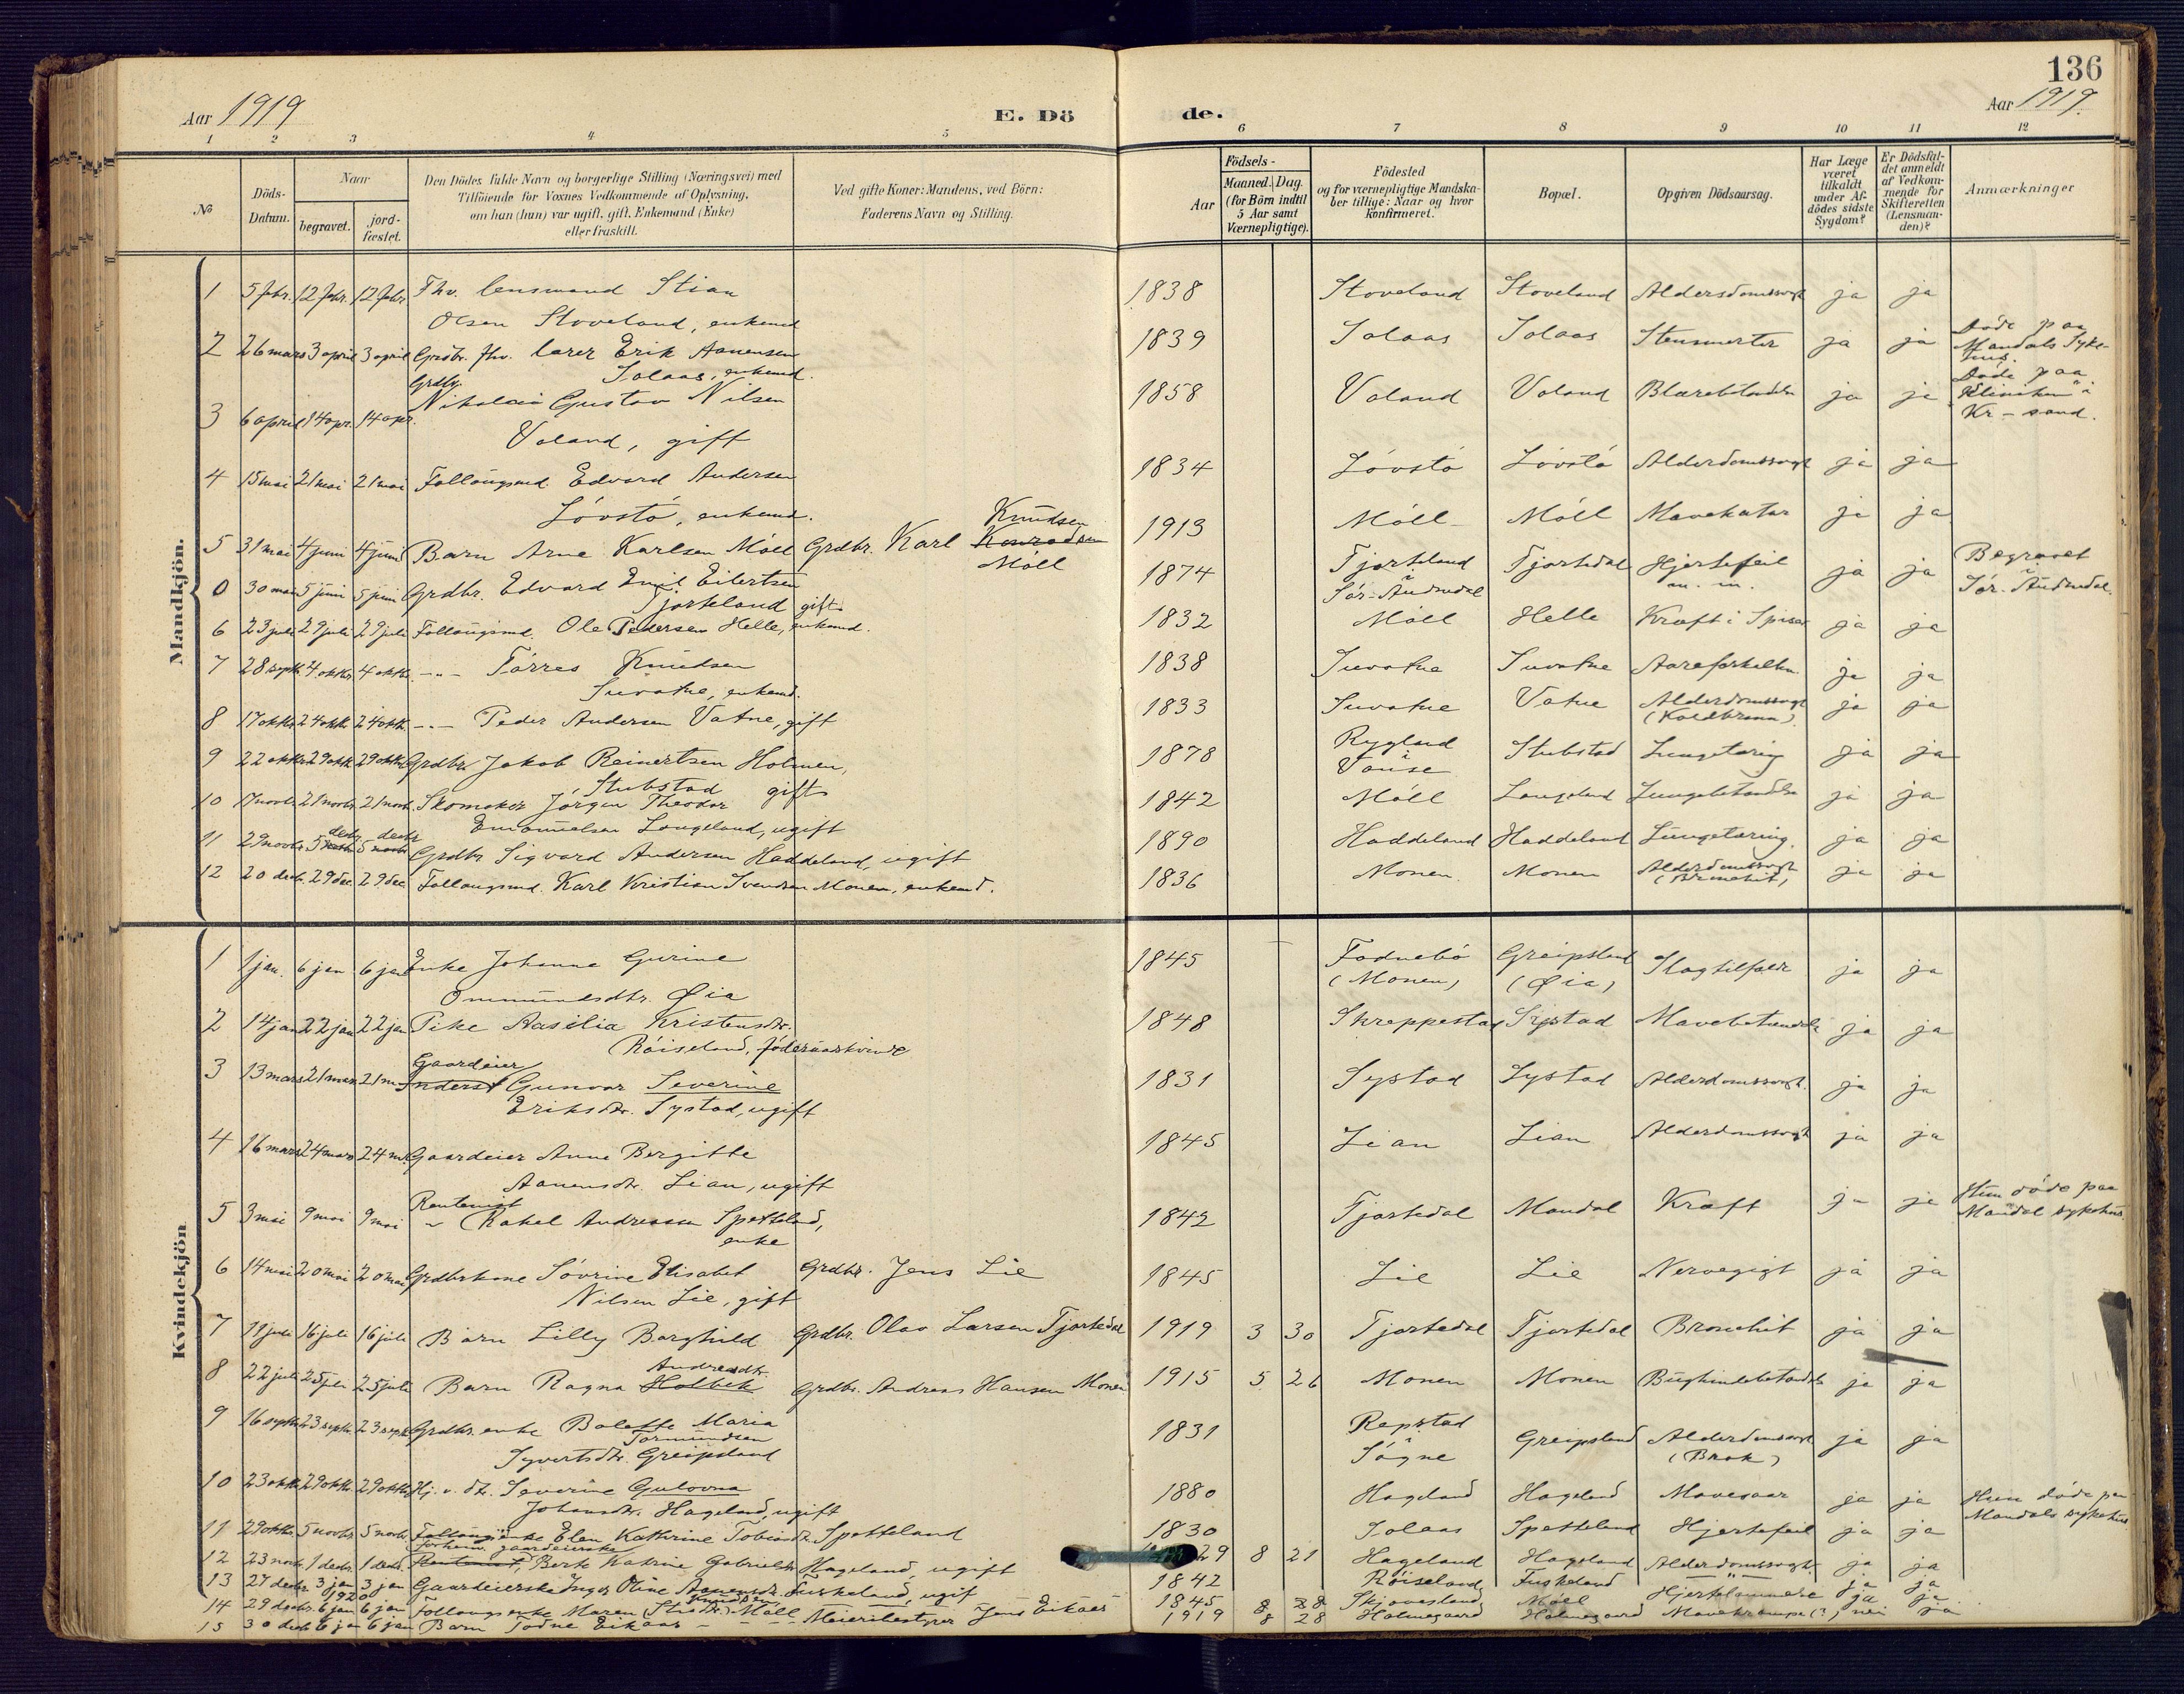 136
Aar 1919
E. Dö de.
Aar 1919.
1 2 3 4 5 6 7 8 9 10 11 12
No
Döds-Datum.
Naar
begravet.
jord-fæstet.
Den Dödes fulde Navn og borgerlige Stilling (Næringsvei) med
Tilföiende for Voxnes Vedkommende af Oplysning,
om han (hun) var ugift, gift, Enkemand (Enke)
eller fraskilt.
Ved gifte Koner: Mandens, ved Börn:
Faderens Navn og Stilling.
Födsels-
Aar
Maaned. Dag.
(for Börn indtil
5 Aar samt
Værnepligtige).
Födested
og for værnepligtige Mandska-
ber tillige: Naar og hvor
konfirmeret.
Bopæl.
Opgiven Dödsaarsag.
Har Læge
været
tilkaldt
under Af-
dödes sidste
Sygdom?
Er Dödsfal-
det anmeldt
af Vedkom-
mende for
Skifteretten
(Lensman-
den)?
Anmærkninger
Mandkjön.
1 5 febr. 12 febr. 12 febr. Fhv. lensmand Stian 1838 Stoveland Stoveland Alderdomssvagh ja ja
Olsen Stoveland, enkemd
2 26 mars 3 april 3 april Grdbr. fhv. lærer Erik Aanensen 1839 Solaas Solaas Stensmerter ja ja Döde paa
Solaas, enkemd. Mandals Syke-
hus.
3 6 april 14 apr. 14 apr. Grdbr. Nikolai Gustav Nilsen 1858 Valand Valand ja ja Döde paa
Valand, gift Kliniken i
Kr-sand.
4 15 mai 21 mai 21 mai Follaugsmd. Edvard Andersen 1834 Lövstö Lövstö Alderdomssvagh ja ja
Lövstö, enkemd.
5 31 mai 4 juni 4 juni Barn Arne Karlsen Möll Grdbr. Karl Knudsen 1913 Möll Möll Mavekatar ja ja
Möll
0 30 mai 5 juni 5 juni Grdbr. Edvard Emil Eilertsen 1874 Tjorteland Tjortedal Hjertefeil ja ja Begravet
Tjorteland gift i Sör-Audnedal m. m. i Sör-Audnedal.
6 23 juli 29 juli 29 juli Follaugsmd. Ole Pedersen Helle, enkemd. 1832 Möll Helle Kræft i Spiser ja ja
7 28 septr 4 oktbr 4 oktbr -"- Törres Knudsen 1838 Suvatne Suvatne Aareforkalkn. ja ja
Suvatne, enkemd.
8 17 oktbr 24 oktb 24 oktb -"- Peder Andersen Vatne, gift 1833 Suvatne Vatne Alderdomssvagh ja ja
(Koldbrann)
9 22 oktbr 29 oktb 29 oktbr Grdbr. Jakob Reinertsen Holmen, 1878 Rygland Stubstad Lungetæring ja ja
Stubstad gift i Vanse
10 17 novbr 21 novbr 21 novb. Skomaker Jörgen Theodor 1842 Möll Langeland Lungebetændelse ja ja
Emanuelsen Langeland, ugift
11 29 novbr 5 decbr 5 decbr Grdbr Sigvard Andersen Haddeland, ugift 1890 Haddeland Haddeland Lungetæring. ja ja
12 20 decb. 29 dec 29 dec Follaugsmd. Karl Kristian Svendsen Monen, enkemd. 1836 Monen Monen Alderdomssvagh ja ja
(Bronchit)
Kvindekjön
1 1 jan. 6 jan 6 jan Enke Johanne Gurine 1845 Fodnebö Greipsland Slagtilfælde ja ja
Ommundsdtr. Øia (Monen) (Øia)
2 14 jan 22 jan 22 jan Pike Aasilia Kristensdtr. 1848 Skreppestad Systad Mavebetændelse ja ja
Röiseland, föderaadskvinde
3 13 mars 21 mars 21 m Gaardeier Inderst Gunvor Severine 1831 Systad Systad Alderdomssvagh. ja ja
Eriksdtr. Systad, ugift
4 16 mars 24 mars 24 m. Gaardeier Anne Bergitte 1845 Lian Lian Alderdomssvagh ja ja
Aanensdtr. Lian, ugift
5 3 mai 9 mai 9 mai Rakel Andreassen Spetteland, 1842 Tjortedal Mandal Kræft ja ja Hun döde paa
enke Mandal sykehus
6 14 mai 20 mai 20 mai Grdbrkone Sövrine Elisabet Grdbr. Jens Lie 1845 Lie Lie Nervegigt ja ja
Nilsen Lie, gift
7 11 juli 16 juli 16 juli Barn Lilly Borghild Grdbr. Olav Larsen Tjortedal 1919 3 30 Tjortedal Tjortedal Bronchit ja ja
8 22 juli 25 juli 25 juli Barn Ragna Holbek Andreasdtr. Grdbr. Andreas Hansen Monen 1915 5 26 Monen Monen Bughindebetændelse ja ja
9 16 septbr 23 septbr 23 septbr Grdbr. enke Bolette Maria 1831 Repstad Greipsland Alderdomssvagh ja ja
Tormundsen i Sögne (Brok)
Syvertsdtr. Greipsland
10 23 oktbr 29 oktb. 29 oktbr Hj. v. dtr. Severine Gulovna 1880 Hageland Hageland Mavesaar ja ja Hun döde paa
Johansdtr. Hageland, ugift Mandals sykehus
11 29 oktbr 5 novbr 5 novbr Follaugenke Elen Kathrine Tobiasdtr. Spetteland 1830 Solaas Spetteland Hjertefeil ja ja
12 23 novbr 1 decbr 1 decbr. forhenv. gaardeierske Rentenist, Berte Katrine Gabrielsdtr Hageland, ugift 29 8 21 Hageland Hageland Alderdomssvagh. ja ja
13 27 decbr 3 jan 1920 3 jan Gaardeierske Inger Oline Aanensdtr. Fuskeland, ugift 1842 Röiseland Fuskeland -"- ja ja
14 29 decbr. 6 jan 6 jan Follaugsenke Maren Knudsen Möll 1845 Skjævesland Möll Hjertelammelse ja ja
15 30 decb 6 jan 6 jan Barn Todne Eikaas Meieribestyrer Jens Eikaas 1919 8 28 Holmegaard Holmegaard Mavekrampe (?) nei ja